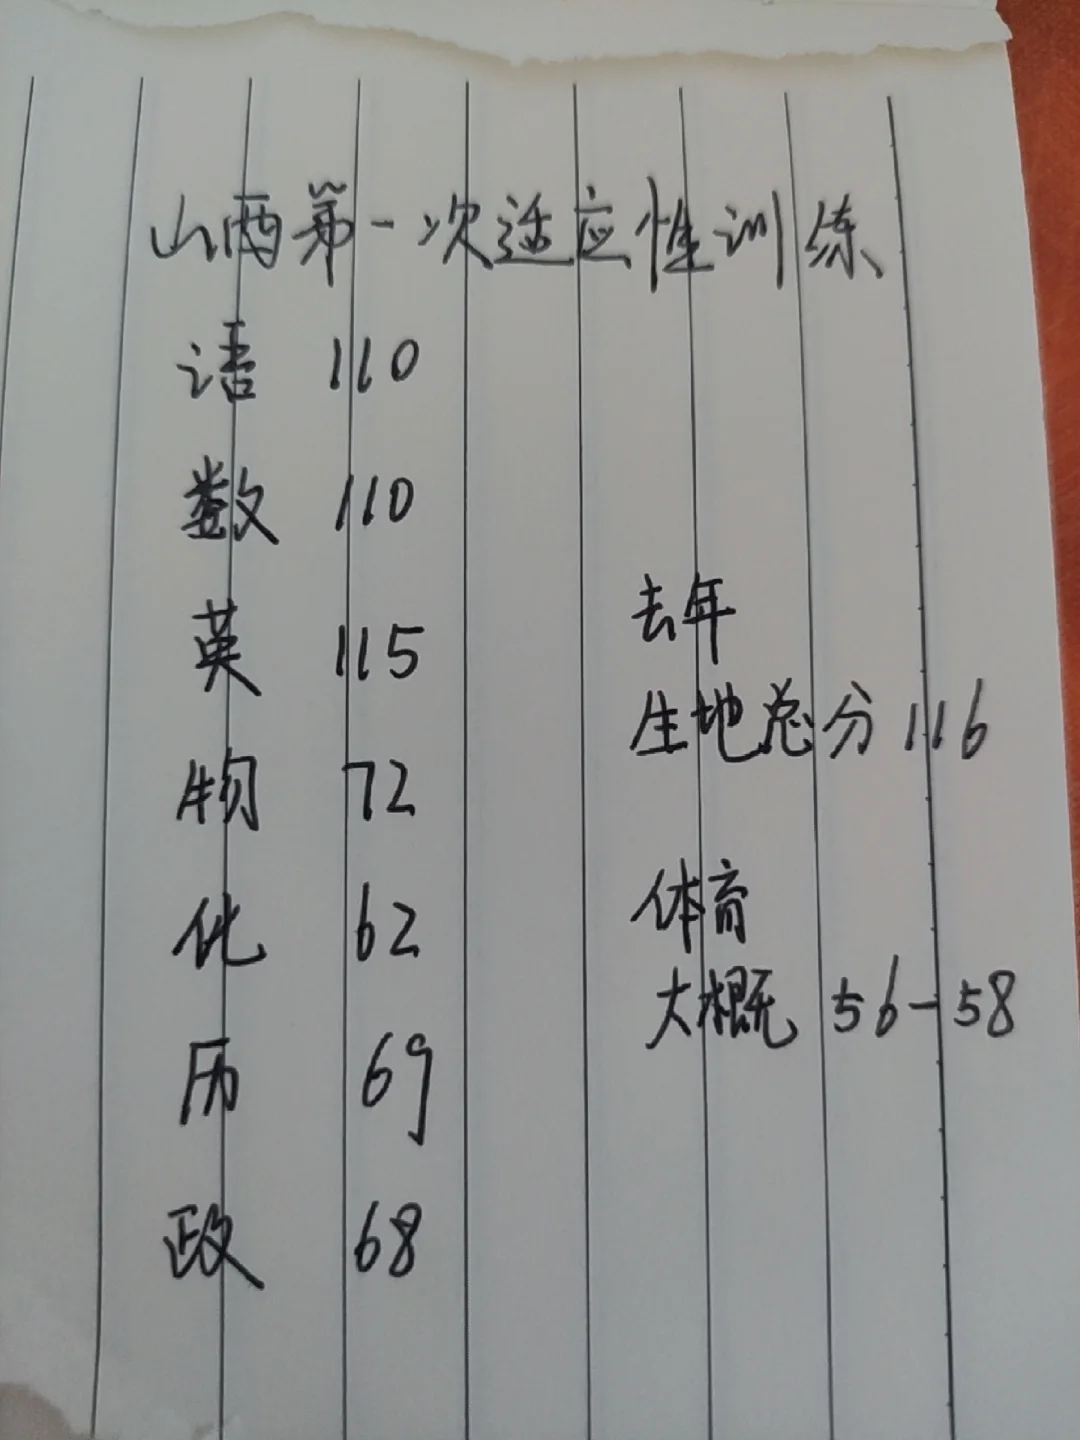 山西第一次适应性训练
语 110
数 110
英 115
物 72
化 62
历 69
政 68
去年
生地总分 116
体育
大概 56-58